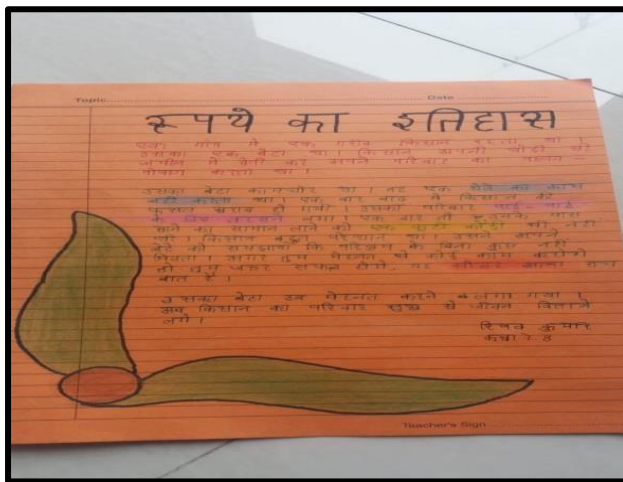 Topic Date
रूपये का इतिहास
एक गांव में एक गरीब किसान रहता था।
उसका एक बेटा था। किसान अपनी थोड़ी सी
जमीन में खेती कर अपने परिवार का पालन-
पोषण करता था।
उसका बेटा कामचोर था। वह एक धेले का काम
नहीं करता था। एक बार बाढ़ में किसान की
फसल खराब हो गयी। उसका परिवार पाई-पाई
के लिए तरसने लगा। एक बार तो उनके पास
खाने का सामान लाने को एक फूटी कौड़ी भी नहीं
थी। किसान बहुत परेशान था। उसने अपने
बेटे को समझाया कि परिश्रम के बिना कुछ नहीं
मिलता। अगर तुम मेहनत से कोई काम करोगे
तो तुम जरूर सफल होगे, यह सोलह आना सच
बात है।
उसका बेटा अब मेहनत करने लगा गया।
अब किसान का परिवार सुख से जीवन बिताने
लगे।
रिषव कुमार
कक्षा ? 8
Teacher's Sign